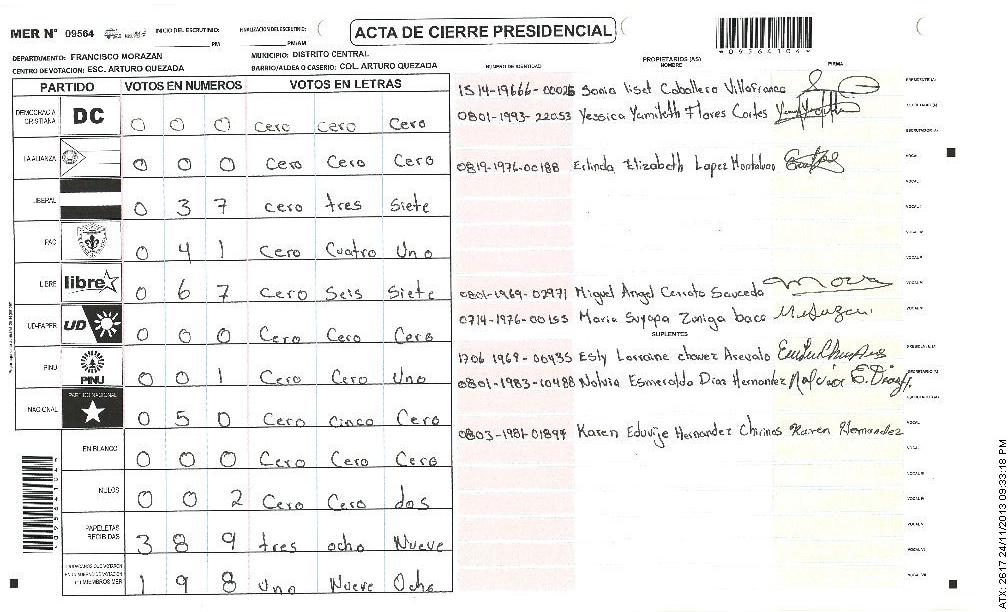 MER N° 09564 INICIO DEL ESCRUTINIO: PM FINALIZACION DEL ESCRUTINIO: PM/AM
ACTA DE CIERRE PRESIDENCIAL
09564104
DEPARTAMENTO: FRANCISCO MORAZAN MUNICIPIO: DISTRITO CENTRAL
CENTRO DE VOTACION: ESC. ARTURO QUEZADA BARRIO/ALDEA O CASERIO: COL. ARTURO QUEZADA
PARTIDO VOTOS EN NUMEROS VOTOS EN LETRAS
DEMOCRACIA CRISTIANA DC 0 0 0 Cero Cero Cero
LA ALIANZA 0 0 0 Cero Cero Cero
LIBERAL 0 3 7 Cero tres Siete
PAC 0 4 1 Cero Cuatro Uno
LIBRE libre 0 6 7 Cero Seis Siete
UD-FAPER UD 0 0 0 Cero Cero Cero
PINU PINU 0 0 1 Cero Cero Uno
NACIONAL PARTIDO NACIONAL 0 5 0 Cero Cinco Cero
EN BLANCO 0 0 0 Cero Cero Cero
NULOS 0 0 2 Cero Cero dos
PAPELETAS RECIBIDAS 3 8 9 tres ocho Nueve
1 9 8 Uno Nueve Ocho
NUMERO DE IDENTIDAD PROPIETARIOS (AS) NOMBRE FIRMA
1514-19666-00026 Sonia liset Caballero Villafranca
0801-1993-22053 Yessica Yamileth Flores Cortes
0819-1976-00188 Erlinda Elizabeth Lopez Montalvan
0801-1969-02971 Miguel Angel Cerrato Sauceda
0714-1976-00153 Maria Suyapa Zuniga baca
SUPLENTES
1706 1969-00435 Esly Lorraine chavez Arevalo
0801-1983-10488 Nolvia Esmeralda Diaz Hernandez Nolvia E. Diaz H.
0803-1981-01897 Karen Eduvije Hernandez Chirinos Karen Hernandez
ATX: 2617 24/11/2013 09:33:18 PM